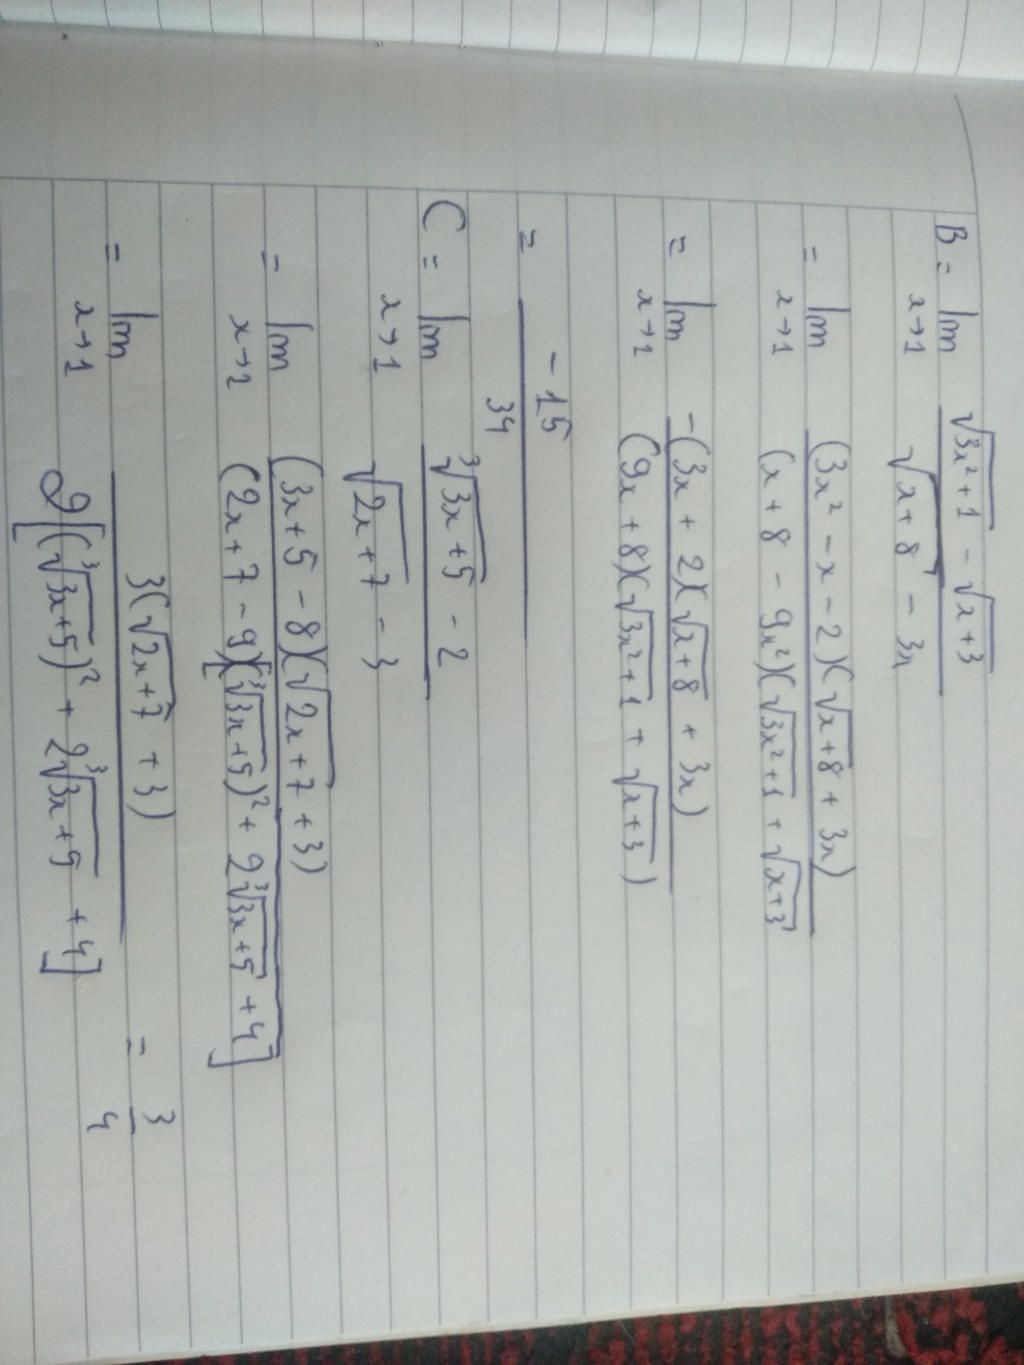 B = lim √(3x²+1) - √(x+3)
x→1 √(x+8) - 3x
= lim (3x² - x - 2)(√(x+8) + 3x)
x→1 (x + 8 - 9x²)(√(3x²+1) + √(x+3)
= lim -(3x + 2)(√(x+8) + 3x)
x→1 (9x + 8)(√(3x²+1) + √(x+3))
= -15
34
C = lim ³√(3x+5) - 2
x→1 √(2x+7) - 3
= lim (3x+5 - 8)(√(2x+7) + 3)
x→1 (2x+7 - 9)[(³√(3x+5))² + 2³√(3x+5) + 4]
= lim 3(√(2x+7) + 3) = 3
x→1 2[(³√(3x+5))² + 2³√(3x+5) + 4] 4